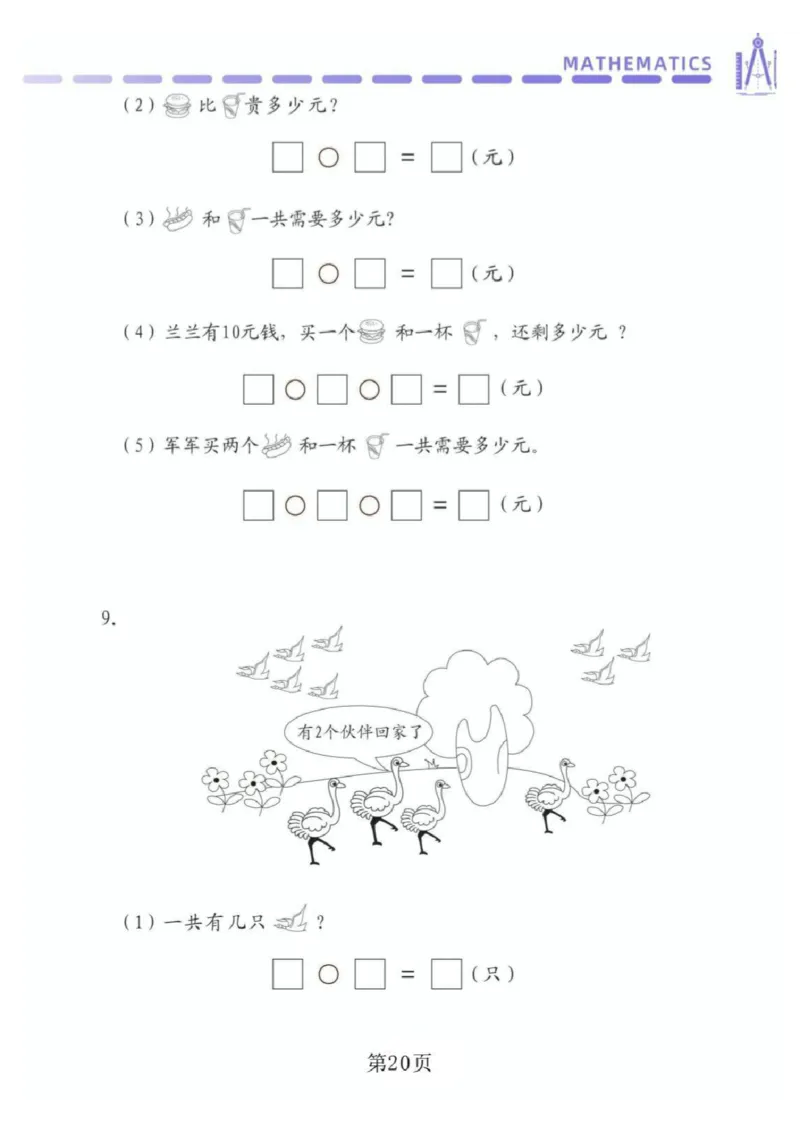 MATHEMATICS
(2) 比 贵多少元?
□○□=□(元)
(3) 和 一共需要多少元?
□○□=□(元)
(4) 兰兰有10元钱，买一个 和一杯 ，还剩多少元 ?
□○□○□=□(元)
(5) 军军买两个 和一杯 一共需要多少元。
□○□○□=□(元)
9.
有2个伙伴回家了
(1) 一共有几只 ?
□○□=□(只)
第20页